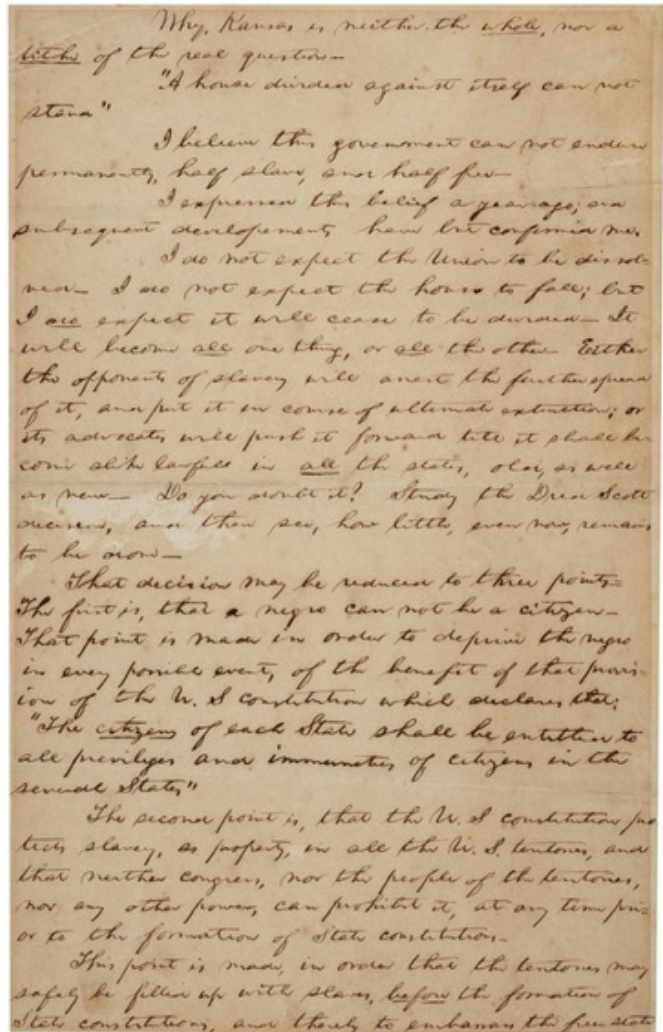 Why, Kansas is neither the whole, nor a
tithe of the real question—
"A house divided against itself can not
stand"
I believe this government can not endure
permanently, half slave, and half free—
I expressed this belief a year ago; and
subsequent developments have but confirmed me.
I do not expect the Union to be dissol-
ved— I do not expect the house to fall; but
I do expect it will cease to be divided— It
will become all one thing, or all the other— Either
the opponents of slavery will arrest the further spread
of it, and put it in course of ultimate extinction; or
its advocates will push it forward till it shall be
come alike lawfull in all the states, old, as well
as new— Do you doubt it? Study the Dred Scott
decision, and then see, how little, even now, remains
to be done—
That decision may be reduced to three points—
The first is, that a negro can not be a citizen—
That point is made in order to deprive the negro
in every possible event, of the benefit of that provis-
ion of the U. S constitution which declares that:
"The citizens of each State shall be entitled to
all previleges and immunities of citizens in the
several States"
The second point is, that the U. S constitution pro
tects slavery, as property, in all the U. S. teritories, and
that neither congress, nor the people of the teritories,
nor any other power, can prohibit it, at any time pri-
or to the formation of State constitutions—
This point is made, in order that the teritories may
safely be filled up with slaves, before the formation of
State constitutions, and thereby to embarrass the free state